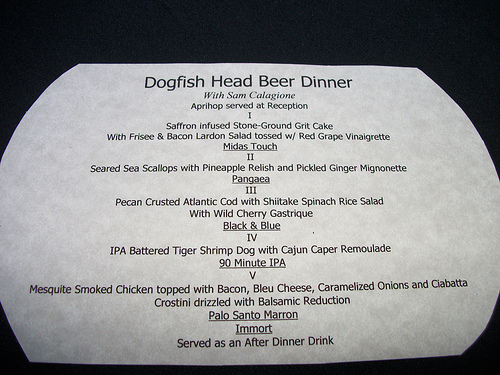 Dogfish Head Beer Dinner
With Sam Calagione
Aprihop served at Reception
I
Saffron infused Stone-Ground Grit Cake
With Frisee & Bacon Lardon Salad tossed w/ Red Grape Vinaigrette
Midas Touch
II
Seared Sea Scallops with Pineapple Relish and Pickled Ginger Mignonette
Pangaea
III
Pecan Crusted Atlantic Cod with Shiitake Spinach Rice Salad
With Wild Cherry Gastrique
Black & Blue
IV
IPA Battered Tiger Shrimp Dog with Cajun Caper Remoulade
90 Minute IPA
V
Mesquite Smoked Chicken topped with Bacon, Bleu Cheese, Caramelized Onions and Ciabatta
Crostini drizzled with Balsamic Reduction
Palo Santo Marron
Immort
Served as an After Dinner Drink